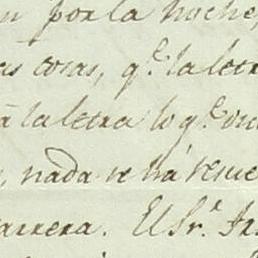 por la noche,
as cosas, q.e la letra
a la letra lo q.e
, nada se há resue
arrera. El Sr.